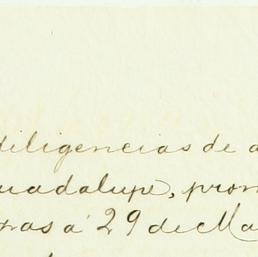 diligencias de a
uadalupe, prom
ras a 29 de Ma